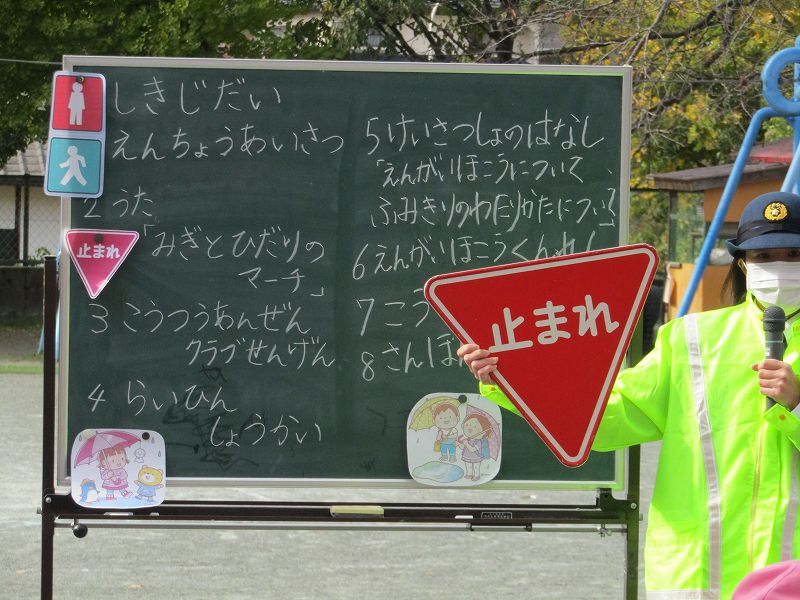 しきじだい
えんちょうあいさつ
2 うた
「みぎとひだりの
マーチ」
3 こうつうあんぜん
クラブせんげん
4 らいひん
しょうかい
5 けいさつしょのはなし
「えんがいほこうについて
ふみきりのわたりかたについ
6 えんがいほこうくんれ
7 こう
8 さんぽ
止まれ
止まれ